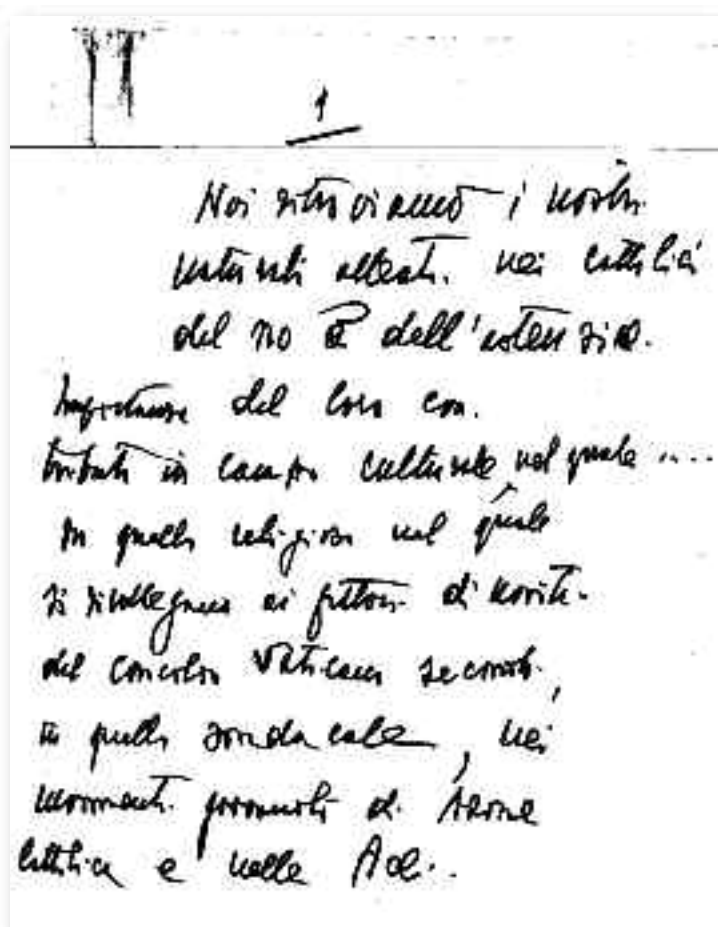 1
Noi ritroviamo i nostri
naturali alleati nei cattolici
del no e dell'astensione.
Importanza del loro con-
tributo in campo culturale nel quale ....
in quello religioso nel quale
si ricollegano ai fattori di novità
del concilio Vaticano secondo,
in quello sindacale, nei
movimenti giovanili di Azione
Cattolica e nelle Acli.